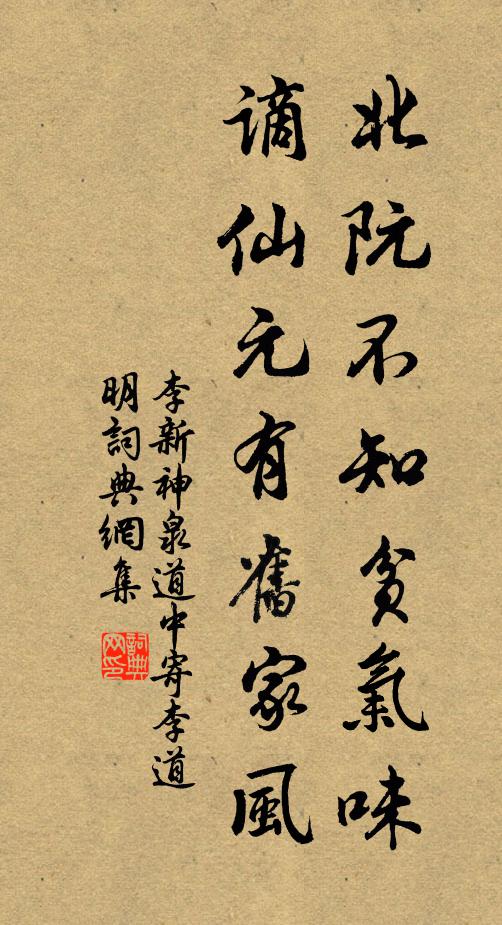 北阮不知貧氣味
謫仙元有舊家風
李新神泉道中寄李道
明詞典網集
詞典網印